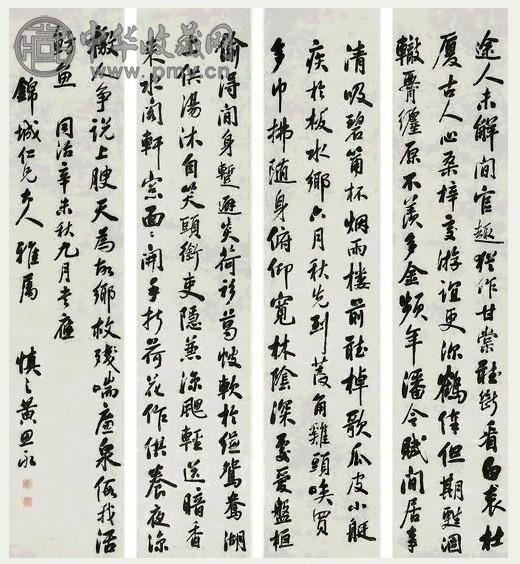 途人未解閒官趣猶作甘棠聽斷看白裘杜
廈古人心桑梓交游誼更深鶴俸但期甦涸
轍纏原不羨多金頻年潘令賦閒居事
清吸碧筩杯烟雨樓前聽棹歌瓜皮小艇
疾於梭水鄉六月秋先到菱角雞頭喚買
多巾拂隨身俯仰寬林陰深處愛盤桓
偷得閒身暫避炎荷衫葛帔軟於縑鴛鴦湖
上供湯沐自笑頭銜吏隱兼涼颸輕送暗香
來水閣軒窗面面開手折荷花作供養夜涼
人爭說上腴天為故鄉救殘喘廉泉假我活
枯魚 同治辛未秋九月書應
錦城仁兄大人雅屬 慎之黃思永
中华收藏网